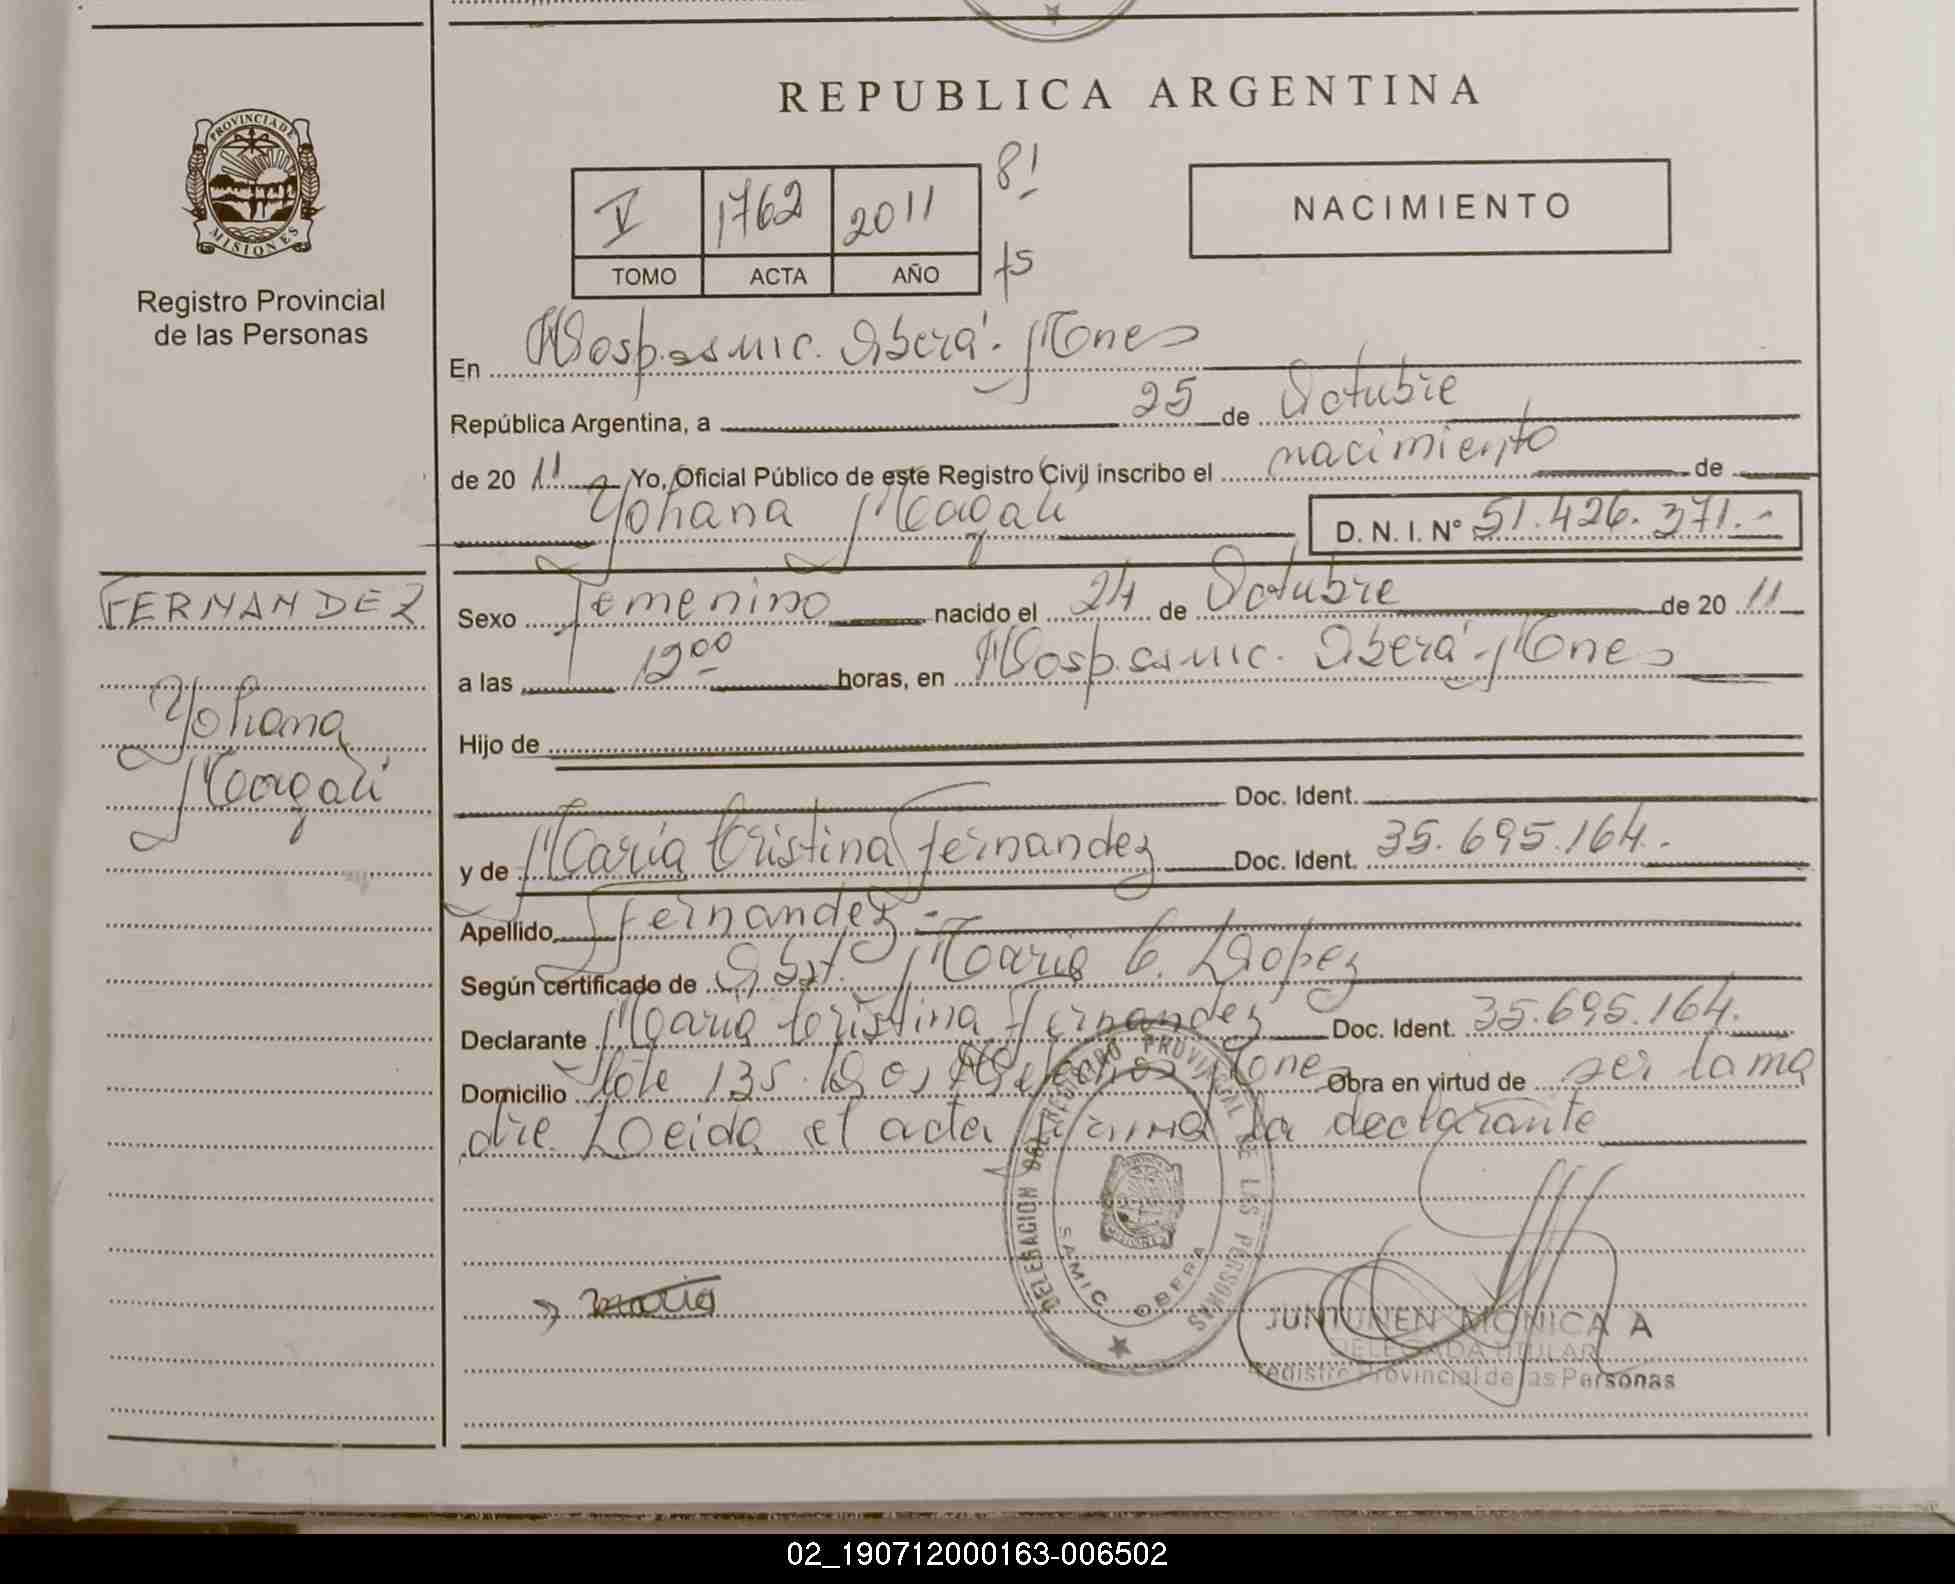 REPUBLICA ARGENTINA
PROVINCIA DE
MISIONES
Registro Provincial
de las Personas
V 1762 2011 8!
TOMO ACTA AÑO
NACIMIENTO
En Hosp. Samic. Oberá. Mones
República Argentina, a 25 de Octubre
de 20 11 Yo, Oficial Público de este Registro Civil inscribo el nacimiento de
Yohana Magali D. N. I. Nº 51.426.371.-
FERNANDEZ
Yohana
Magali
Sexo Femenino nacido el 24 de Octubre de 20 11
a las 12 00 horas, en Hosp. Samic. Oberá. Mones
Hijo de
Doc. Ident.
y de María Cristina Fernandez Doc. Ident. 35.695.164.-
Apellido Fernandez.-
Según certificado de Obst. Maria C. Lopez
Declarante Maria Cristina Fernandez Doc. Ident. 35.695.164.
Domicilio Lote 135. Los Helechos Mones Obra en virtud de ser la ma
dre. Leida el acta firma la declarante
DELEGACION DEL REGISTRO PROVINCIAL DE LAS PERSONAS
SAMIC OBERA
JUNTUNEN MONICA A
DELEGADA TITULAR
Registro Provincial de las Personas
02_190712000163-006502